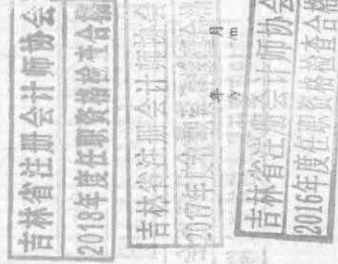 吉林省注册会计师协会
2018年度任职资格检查合格
吉林省注册会计师协会
2017年度任职资格检查合格
年 月
/y /m
吉林省注册会计师协会
2016年度任职资格检查合格